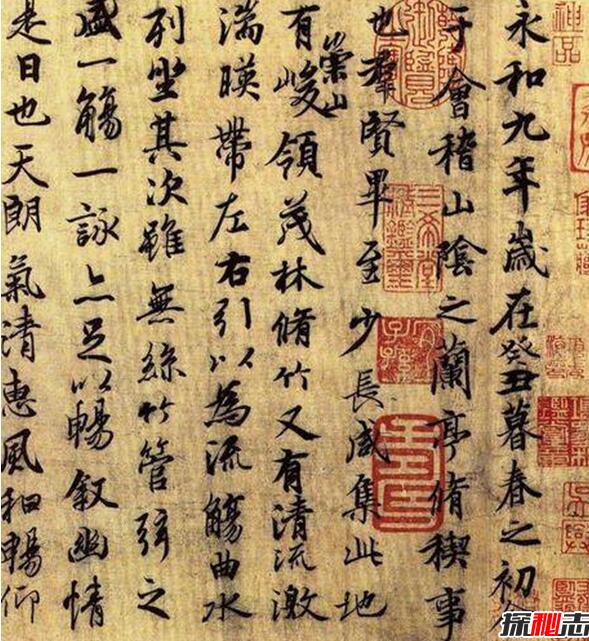 永和九年歲在癸丑暮春之初會
于會稽山陰之蘭亭脩稧事
也羣賢畢至少長咸集此地
有崇山峻領茂林脩竹又有清流激
湍暎帶左右引以為流觴曲水
列坐其次雖無絲竹管弦之
盛一觴一詠亦足以暢叙幽情
是日也天朗氣清惠風和暢仰
神品
三希堂精鑑璽
宜子孫
探秘志